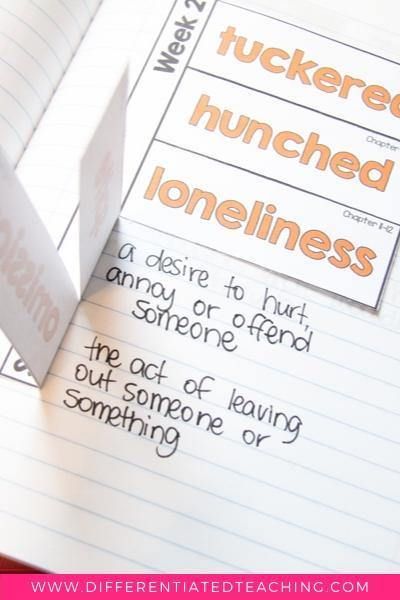 Week 2
tuckere
Chapter
hunched
Chapter 11-12
loneliness
a desire to hurt,
annoy or offend
someone
the act of leaving
out someone or
something
WWW.DIFFERENTIATEDTEACHING.COM